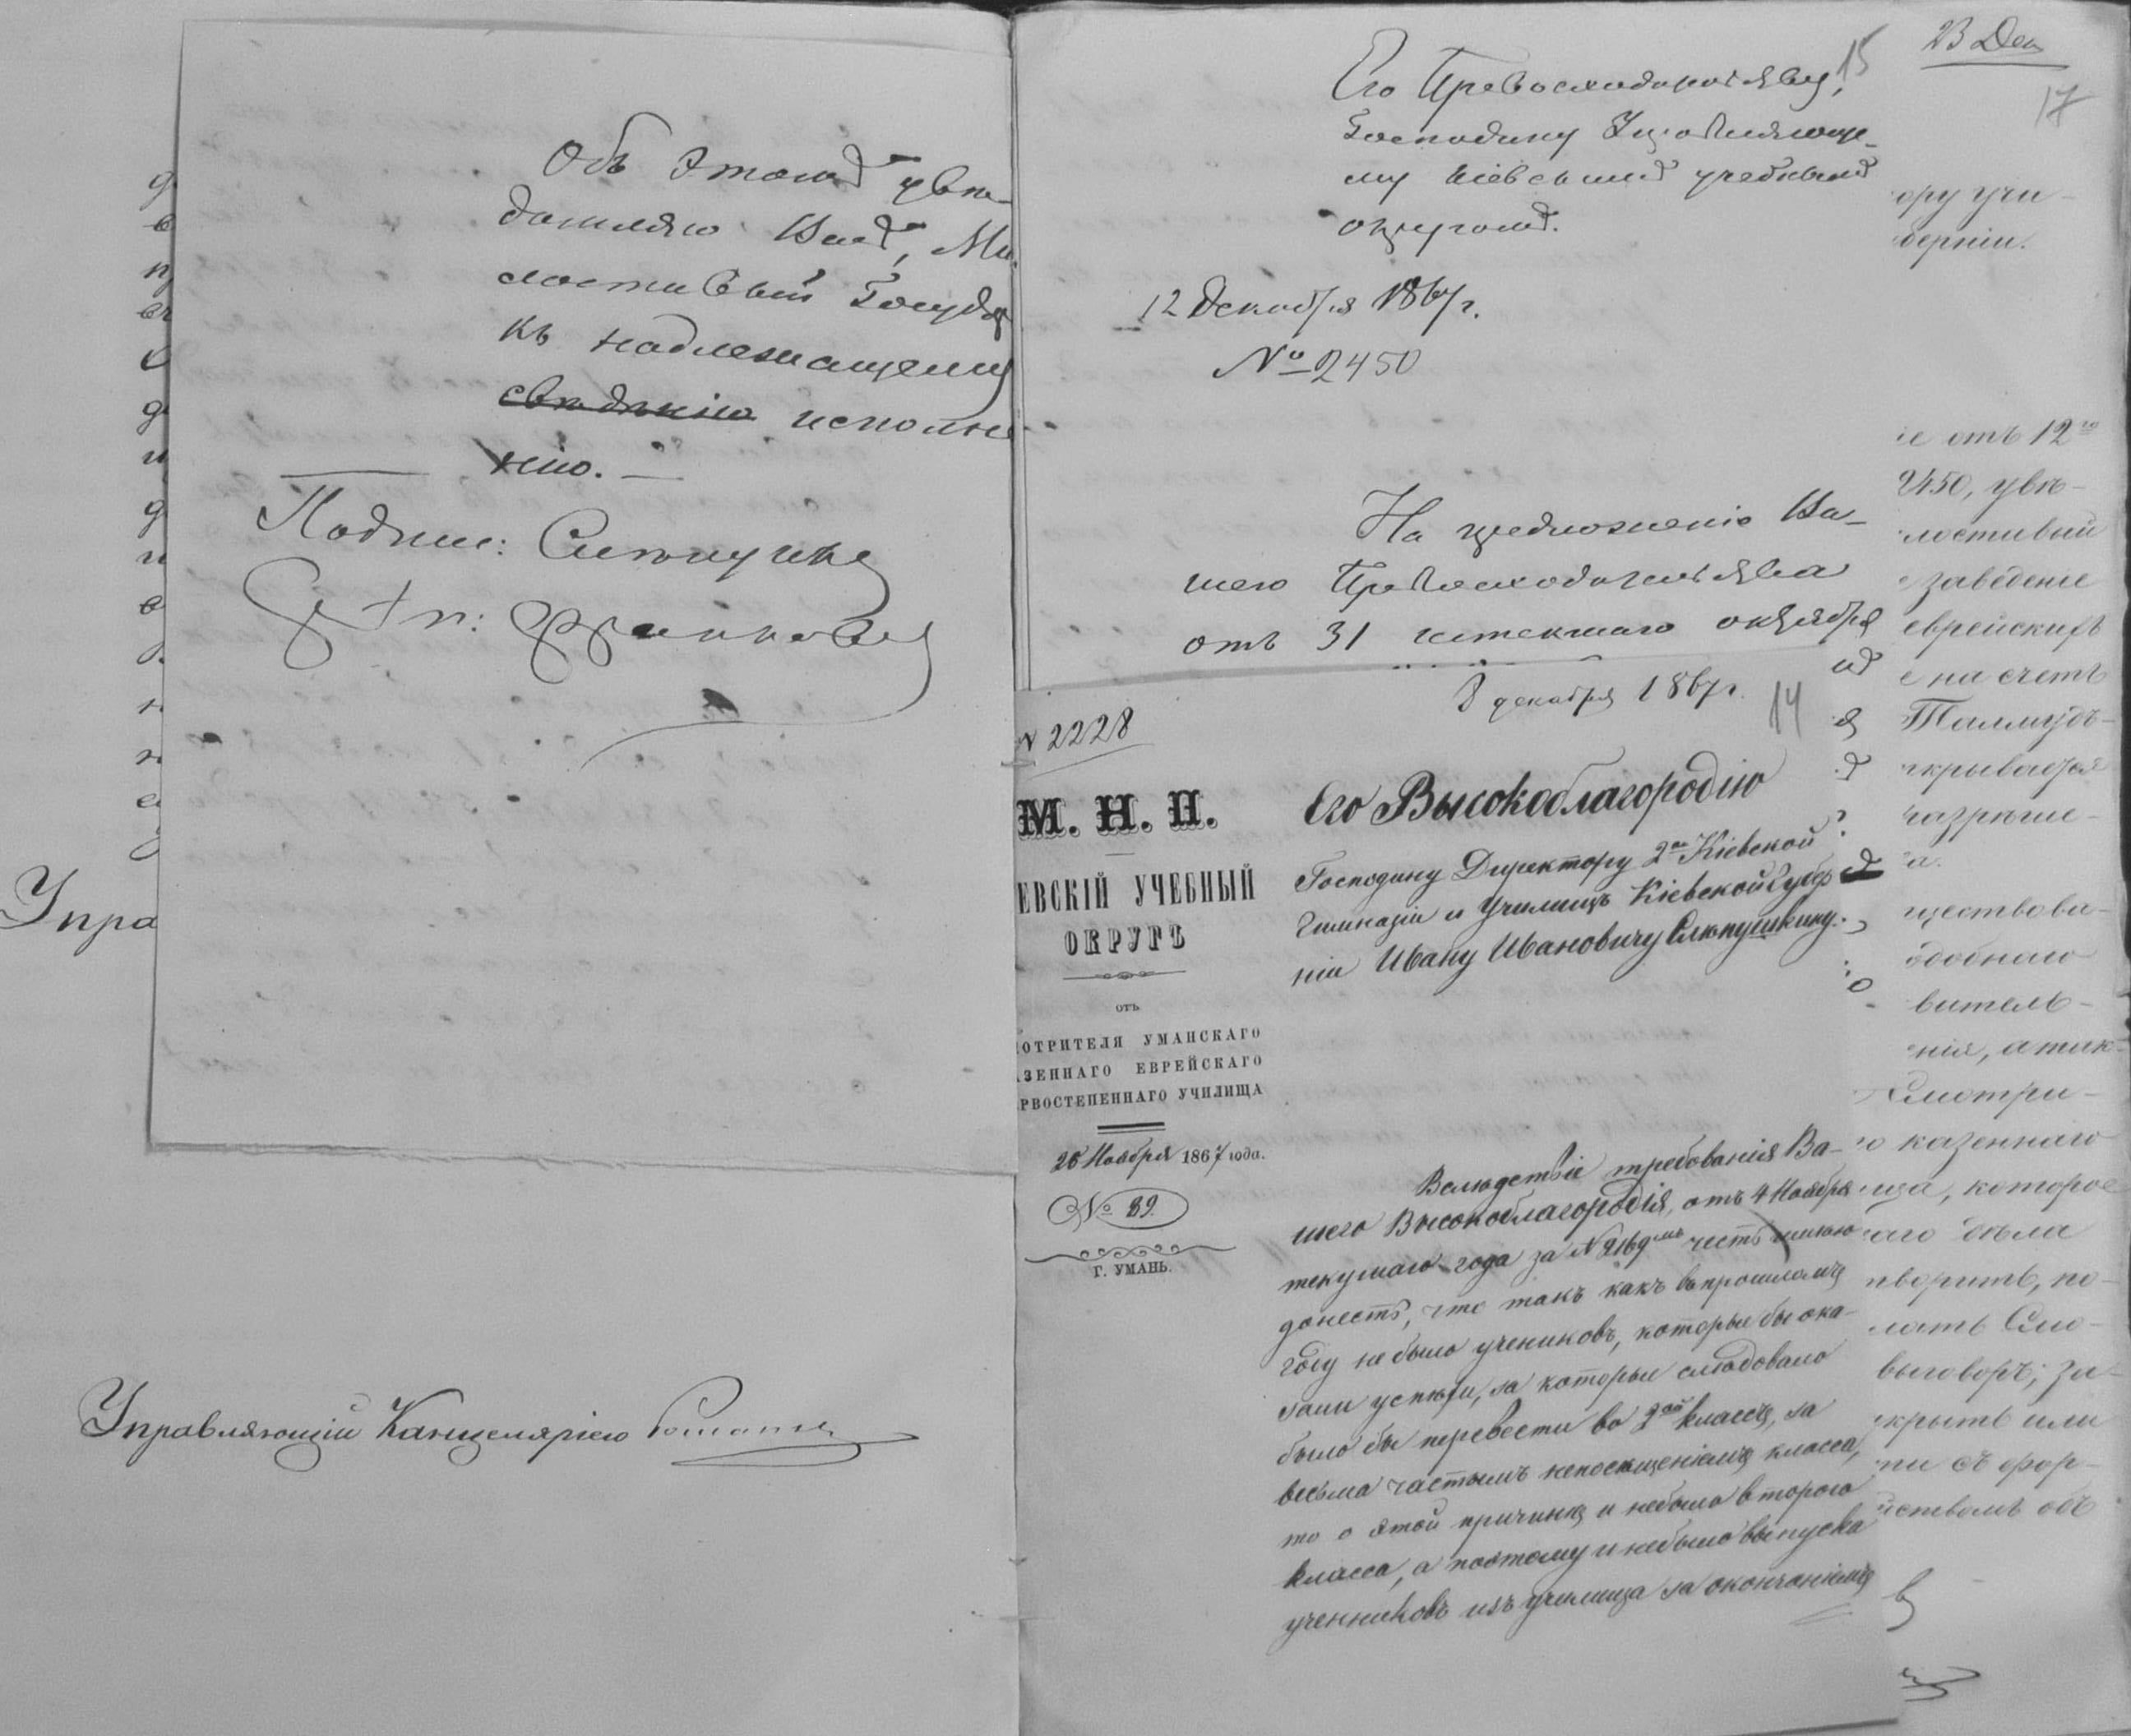 Объ этомъ увѣ-
домляю Васъ, Ми-
лостивый Госуда
къ надлежащему
свѣдѣнію исполне
нію. —
Подпис: Слѣпушки
Упра
Управляющій Канцеляріею
15
Его Превосходительству,
Господину Управляюще-
му Кіевскимъ учебнымъ
округомъ.
12 Декабря 1867 г.
№ 2450
На предложеніе Ва-
шего Превосходительства
отъ 31 истекшаго октября
8 декабря 1867 г.
14
N 2228
М. Н. П.
ЕВСКІЙ УЧЕБНЫЙ
ОКРУГЪ
отъ
ОТРИТЕЛЯ УМАНСКАГО
АЗЕННАГО ЕВРЕЙСКАГО
РВОСТЕПЕННАГО УЧИЛИЩА
28 Ноября 1867 года.
№ 89.
Г. УМАНЬ.
Его Высокоблагородію
Господину Директору 2ой Кіевской
Гимназіи и Училищъ Кіевской Губер
ніи Ивану Ивановичу Слѣпушкину.
Вслѣдствіе требованія Ва-
шего Высокоблагородія, отъ 4 Ноября
текущаго года за N 2169мъ честь имѣю
донесть, что такъ какъ въ прошломъ
году не было учениковъ, которые бы ока-
зали успѣхи, за которые слѣдовало
было бы перевести во 2ой классъ, за
весьма частымъ непосѣщеніемъ класса,
то о этой причинѣ и небыло второго
класса, а поэтому и небыло выпуска
учениковъ изъ училища за окончаніемъ
23 Дек
17
ору учи-
берніи.
іе отъ 12го
2450, увѣ-
лостивый
заведеніе
еврейскихъ
е на счетъ
Талмудъ-
ткрывается
разрѣше-
а.
ществова-
одобнаго
витель-
нія, а так-
Смотри-
о казеннаго
ища, которое
аго дѣла
творить, по-
лать Смо-
выговоръ; за-
крыть или
ти съ фор-
йствомъ объ